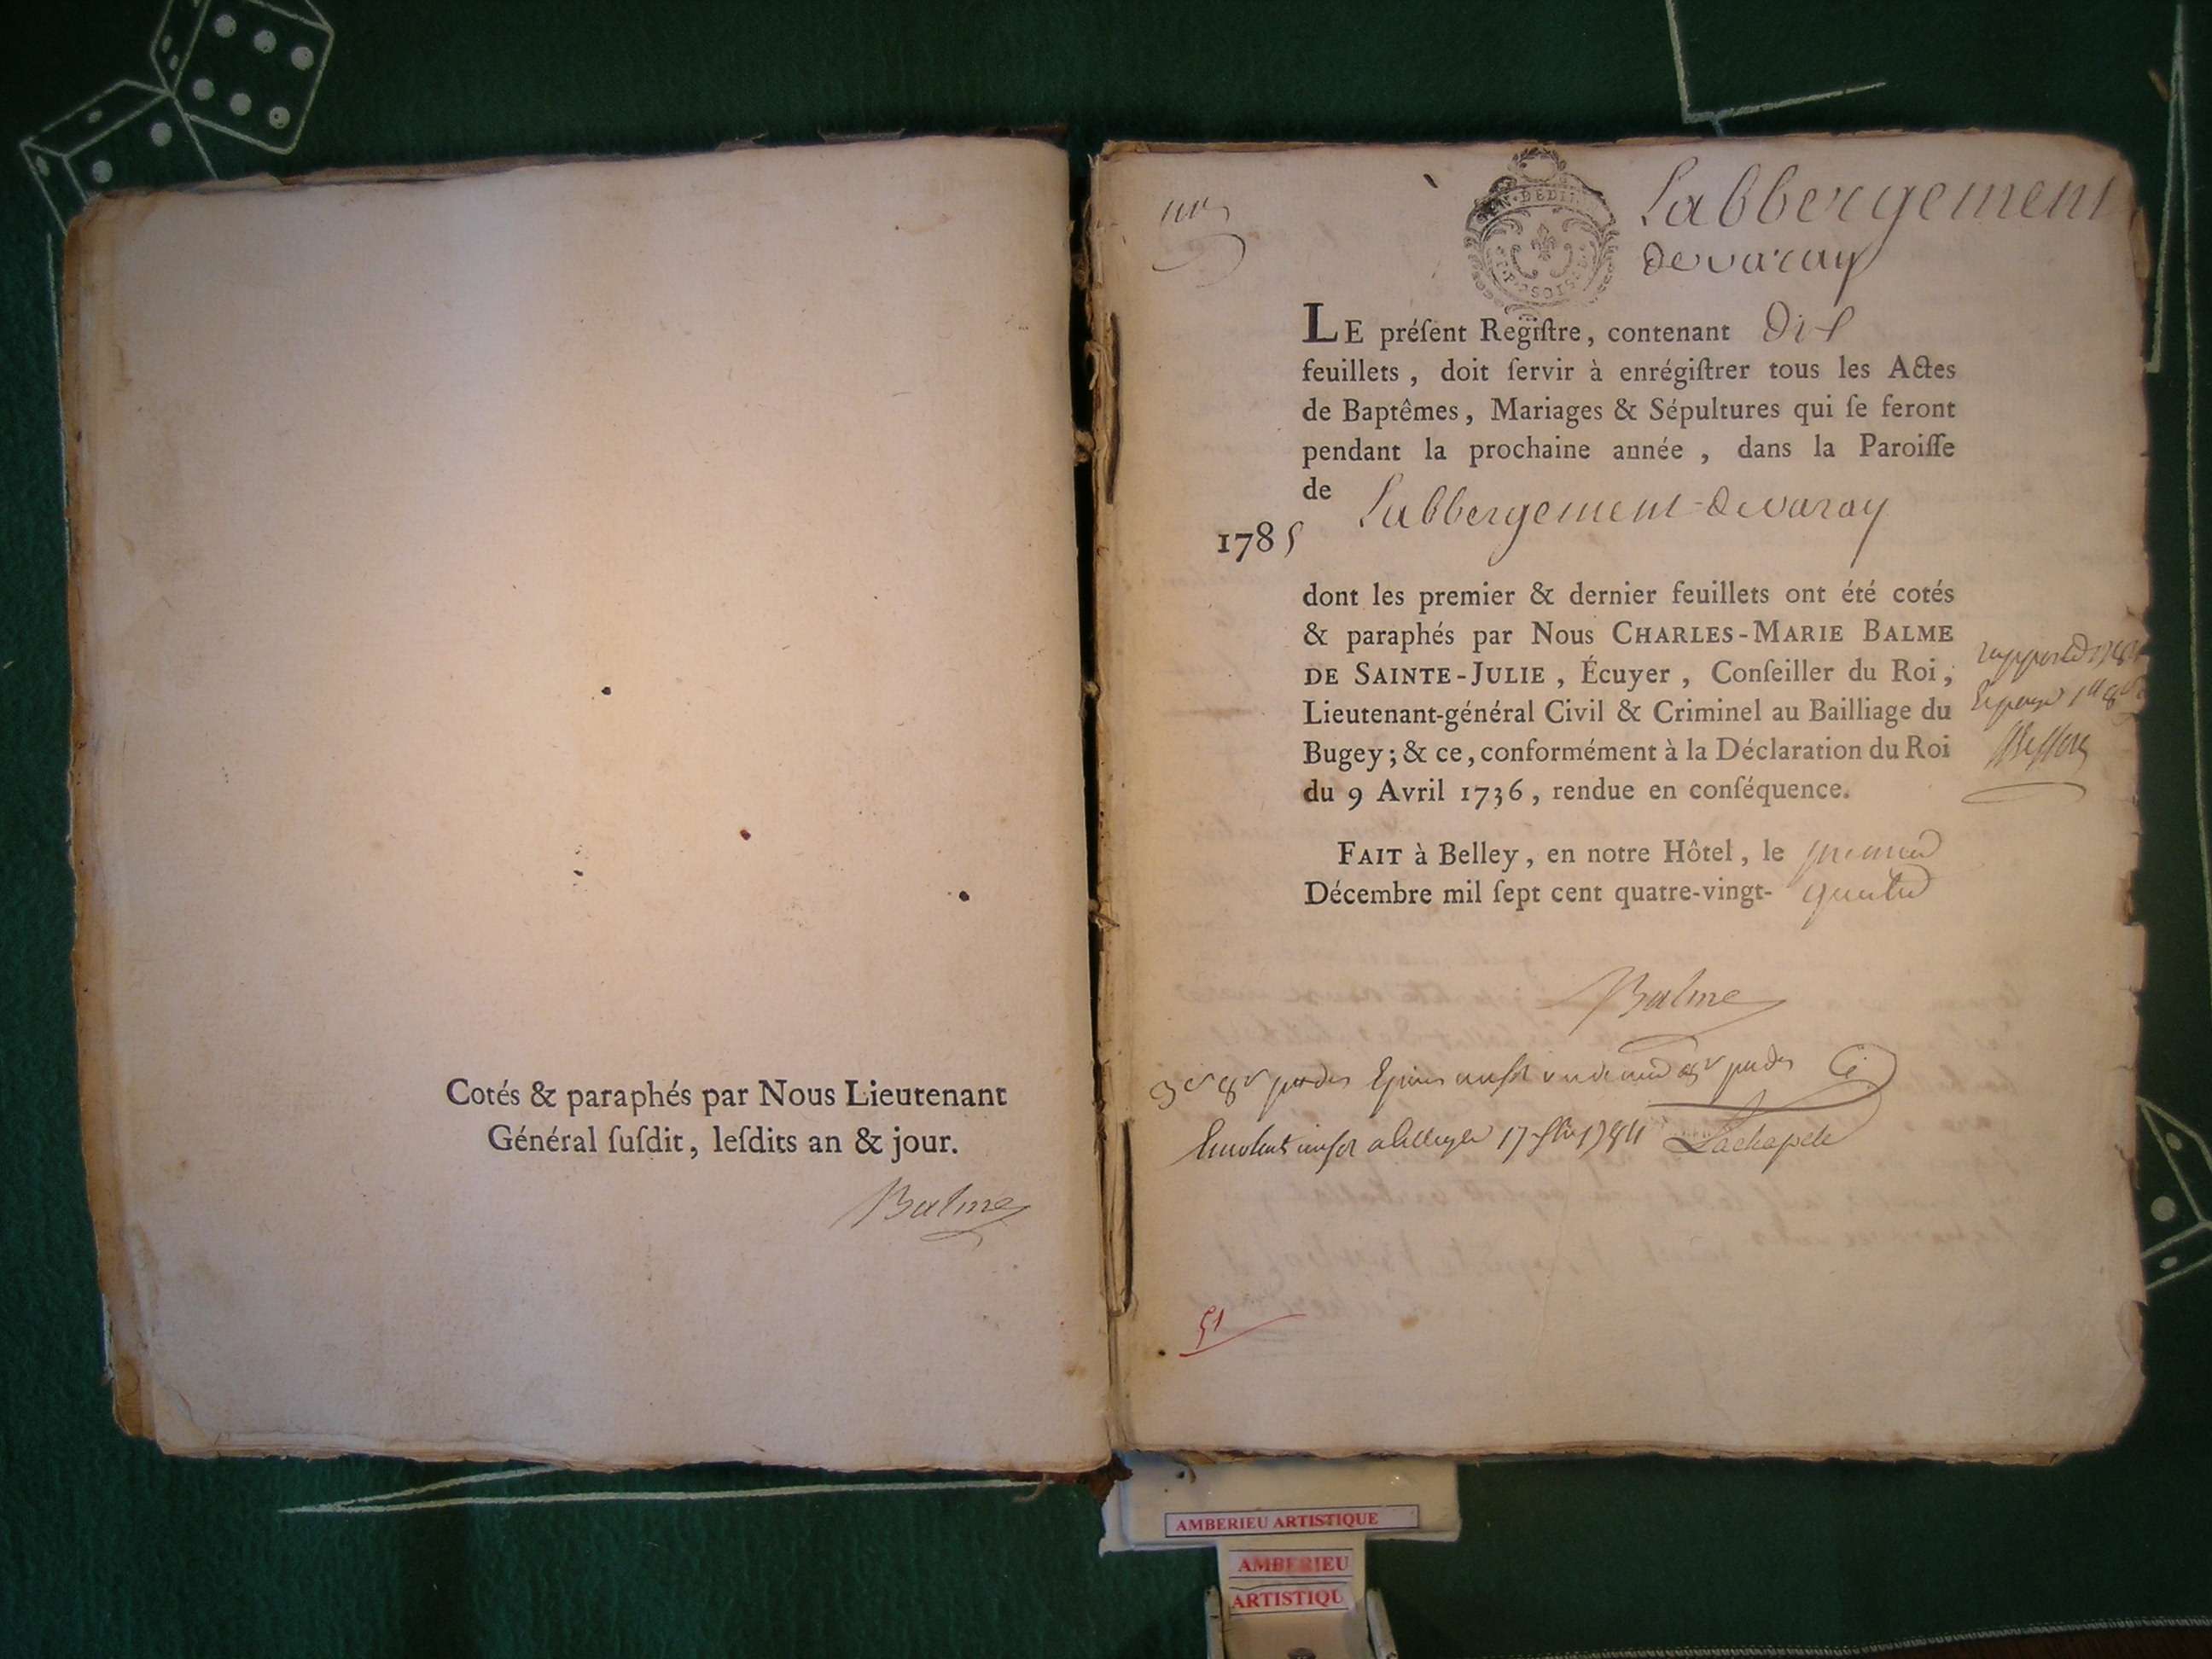 Cotés & paraphés par Nous Lieutenant
Général ſuſdit, leſdits an & jour.
Balme
Labbergement
de varay
LE préſent Regiſtre, contenant Dix
feuillets, doit ſervir à enrégiſtrer tous les Actes
de Baptêmes, Mariages & Sépultures qui ſe feront
pendant la prochaine année, dans la Paroiſſe
de Labbergement de varay
1785
dont les premier & dernier feuillets ont été cotés
& paraphés par Nous CHARLES-MARIE BALME
DE SAINTE-JULIE, Écuyer, Conſeiller du Roi,
Lieutenant-général Civil & Criminel au Bailliage du
Bugey; & ce, conformément à la Déclaration du Roi
du 9 Avril 1736, rendue en conſéquence.
FAIT à Belley, en notre Hôtel, le premier
Décembre mil ſept cent quatre-vingt- quatre
Balme
Lachapele
51
AMBERIEU ARTISTIQUE
AMBERIEU
ARTISTIQU